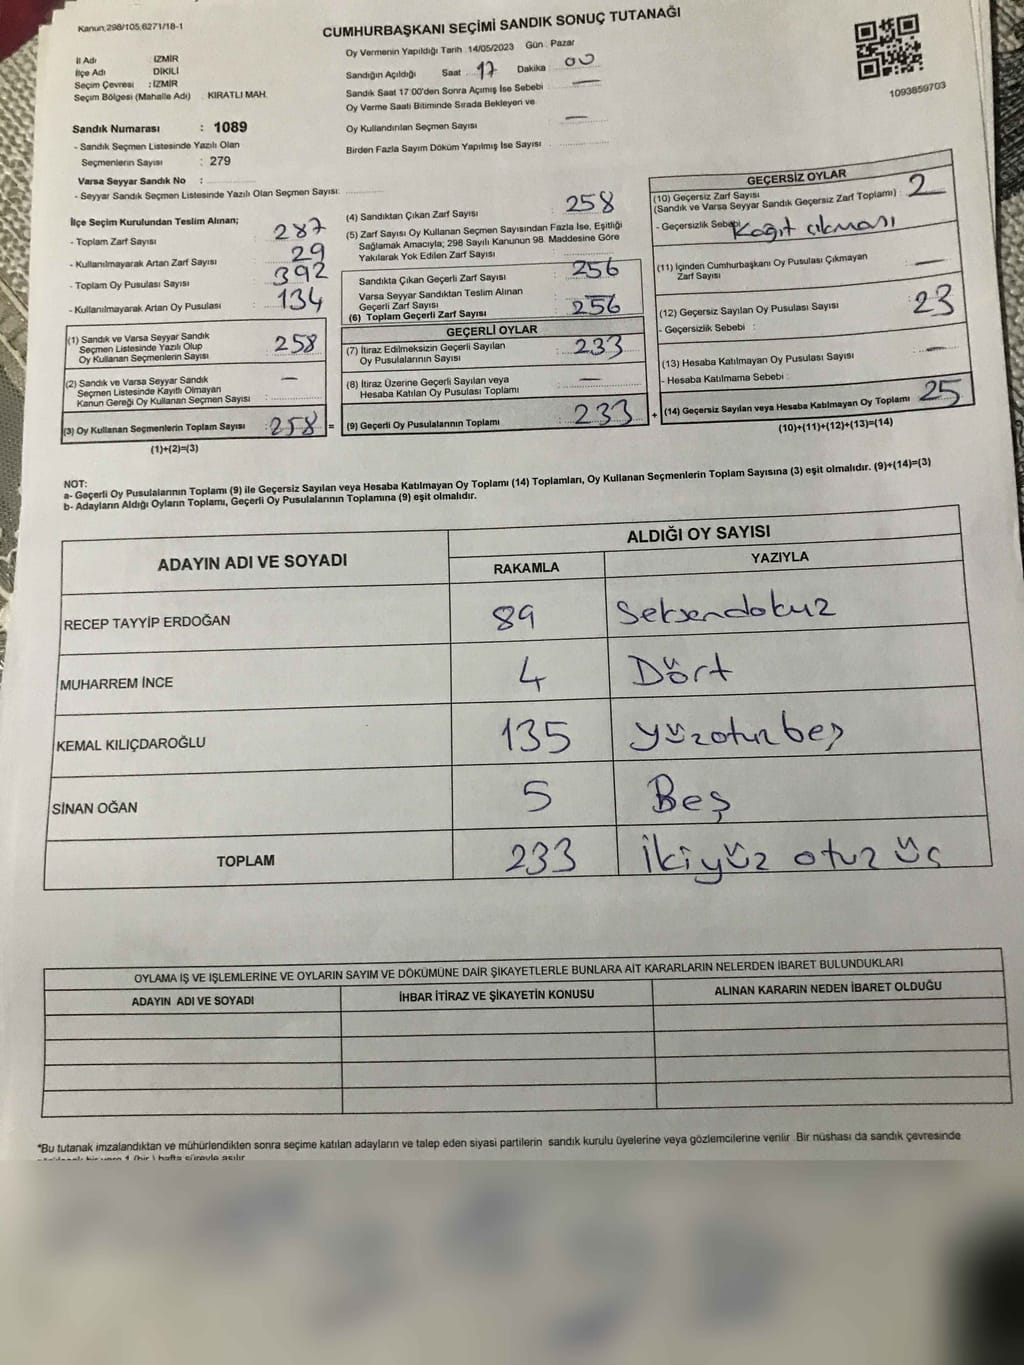 Kanun;298/105,6271/18-1
CUMHURBAŞKANI SEÇİMİ SANDIK SONUÇ TUTANAĞI
İl Adı : İZMİR
İlçe Adı DİKİLİ
Seçim Çevresi : İZMİR
Seçim Bölgesi (Mahalle Adı) : KIRATLI MAH.
Oy Vermenin Yapıldığı Tarih 14/05/2023 Gün : Pazar
Sandığın Açıldığı Saat 17 Dakika 00
Sandık Saat 17:00'den Sonra Açımış İse Sebebi —
Oy Verme Saati Bitiminde Sırada Bekleyen ve
Oy Kullandırılan Seçmen Sayısı —
Birden Fazla Sayım Döküm Yapılmış İse Sayısı
1093859703
Sandık Numarası : 1089
- Sandık Seçmen Listesinde Yazılı Olan
Seçmenlerin Sayısı : 279
Varsa Seyyar Sandık No :
- Seyyar Sandık Seçmen Listesinde Yazılı Olan Seçmen Sayısı:
İlçe Seçim Kurulundan Teslim Alınan;
- Toplam Zarf Sayısı 287
- Kullanılmayarak Artan Zarf Sayısı 29
- Toplam Oy Pusulası Sayısı 392
- Kullanılmayarak Artan Oy Pusulası 134
(1) Sandık ve Varsa Seyyar Sandık
Seçmen Listesinde Yazılı Olup
Oy Kullanan Seçmenlerin Sayısı 258
(2) Sandık ve Varsa Seyyar Sandık
Seçmen Listesinde Kayıtlı Olmayan
Kanun Gereği Oy Kullanan Seçmen Sayısı : —
(3) Oy Kullanan Seçmenlerin Toplam Sayısı : 258 =
(1)+(2)=(3)
(4) Sandıktan Çıkan Zarf Sayısı 258
(5) Zarf Sayısı Oy Kullanan Seçmen Sayısından Fazla İse, Eşitliği
Sağlamak Amacıyla; 298 Sayılı Kanunun 98. Maddesine Göre
Yakılarak Yok Edilen Zarf Sayısı
Sandıkta Çıkan Geçerli Zarf Sayısı 256
Varsa Seyyar Sandıktan Teslim Alınan
Geçerli Zarf Sayısı
(6) Toplam Geçerli Zarf Sayısı 256
GEÇERLİ OYLAR
(7) İtiraz Edilmeksizin Geçerli Sayılan
Oy Pusulalarının Sayısı 233
(8) İtiraz Üzerine Geçerli Sayılan veya
Hesaba Katılan Oy Pusulası Toplamı —
(9) Geçerli Oy Pusulalarının Toplamı 233 +
GEÇERSİZ OYLAR
(10) Geçersiz Zarf Sayısı
(Sandık ve Varsa Seyyar Sandık Geçersiz Zarf Toplamı) : 2
- Geçersizlik Sebebi Kağıt çıkması
(11) İçinden Cumhurbaşkanı Oy Pusulası Çıkmayan
Zarf Sayısı —
(12) Geçersiz Sayılan Oy Pusulası Sayısı 23
- Geçersizlik Sebebi :
(13) Hesaba Katılmayan Oy Pusulası Sayısı —
- Hesaba Katılmama Sebebi :
(14) Geçersiz Sayılan veya Hesaba Katılmayan Oy Toplamı 25
(10)+(11)+(12)+(13)=(14)
NOT:
a- Geçerli Oy Pusulalarının Toplamı (9) ile Geçersiz Sayılan veya Hesaba Katılmayan Oy Toplamı (14) Toplamları, Oy Kullanan Seçmenlerin Toplam Sayısına (3) eşit olmalıdır. (9)+(14)=(3)
b- Adayların Aldığı Oyların Toplamı, Geçerli Oy Pusulalarının Toplamına (9) eşit olmalıdır.
ADAYIN ADI VE SOYADI ALDIĞI OY SAYISI
RAKAMLA YAZIYLA
RECEP TAYYİP ERDOĞAN 89 Seksendokuz
MUHARREM İNCE 4 Dört
KEMAL KILIÇDAROĞLU 135 yüzotuzbeş
SİNAN OĞAN 5 Beş
TOPLAM 233 İkiyüz otuz üç
OYLAMA İŞ VE İŞLEMLERİNE VE OYLARIN SAYIM VE DÖKÜMÜNE DAİR ŞİKAYETLERLE BUNLARA AİT KARARLARIN NELERDEN İBARET BULUNDUKLARI
ADAYIN ADI VE SOYADI İHBAR İTİRAZ VE ŞİKAYETİN KONUSU ALINAN KARARIN NEDEN İBARET OLDUĞU
*Bu tutanak imzalandıktan ve mühürlendikten sonra seçime katılan adayların ve talep eden siyasi partilerin sandık kurulu üyelerine veya gözlemcilerine verilir. Bir nüshası da sandık çevresinde
bir yere 1 (bir) hafta süreyle asılır.